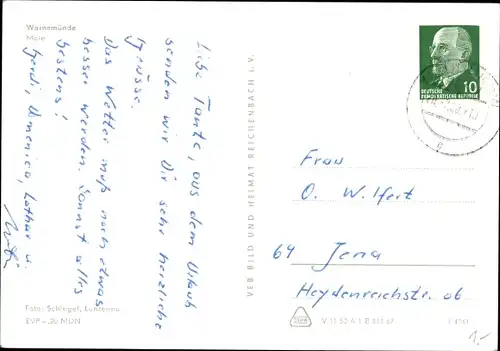 Warnemünde
Mole
Liebe Tante, aus dem Urlaub
senden wir Dir sehr herzliche
Grüsse.
Das Wetter muß noch etwas
besser werden. Sonst alles
bestens!
Gerdi, Lothar u.
Foto: Schlegel, Lunzenau
EVP –.20 MDN
VEB BILD UND HEIMAT REICHENBACH i. V.
10
DEUTSCHE
DEMOKRATISCHE REPUBLIK
Frau
O. Wilfert
69 Jena
Heydenreichstr. 06
1.-